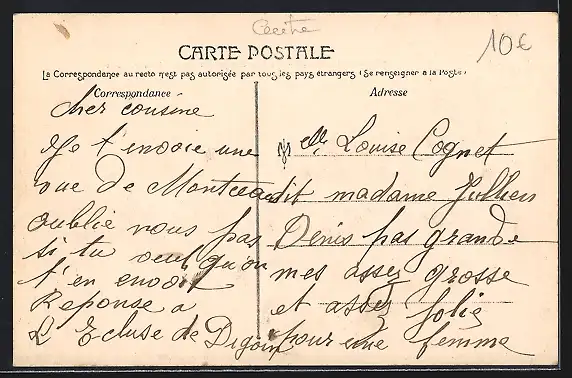 10€
CARTE POSTALE
La Correspondance au recto n'est pas autorisée par tous les pays étrangers (Se renseigner à la Poste)
Correspondance
Adresse
cher cousine
Je t'envoie une
vue de Montceau
oublie nous pas
si tu veut qu'on
t'en envoit
Reponse a
L Ecluse de Digoin
Melle Louise Cognet
dit madame Jullien
Denis pas grande
mes assez grosse
et assez jolie
pour une femme